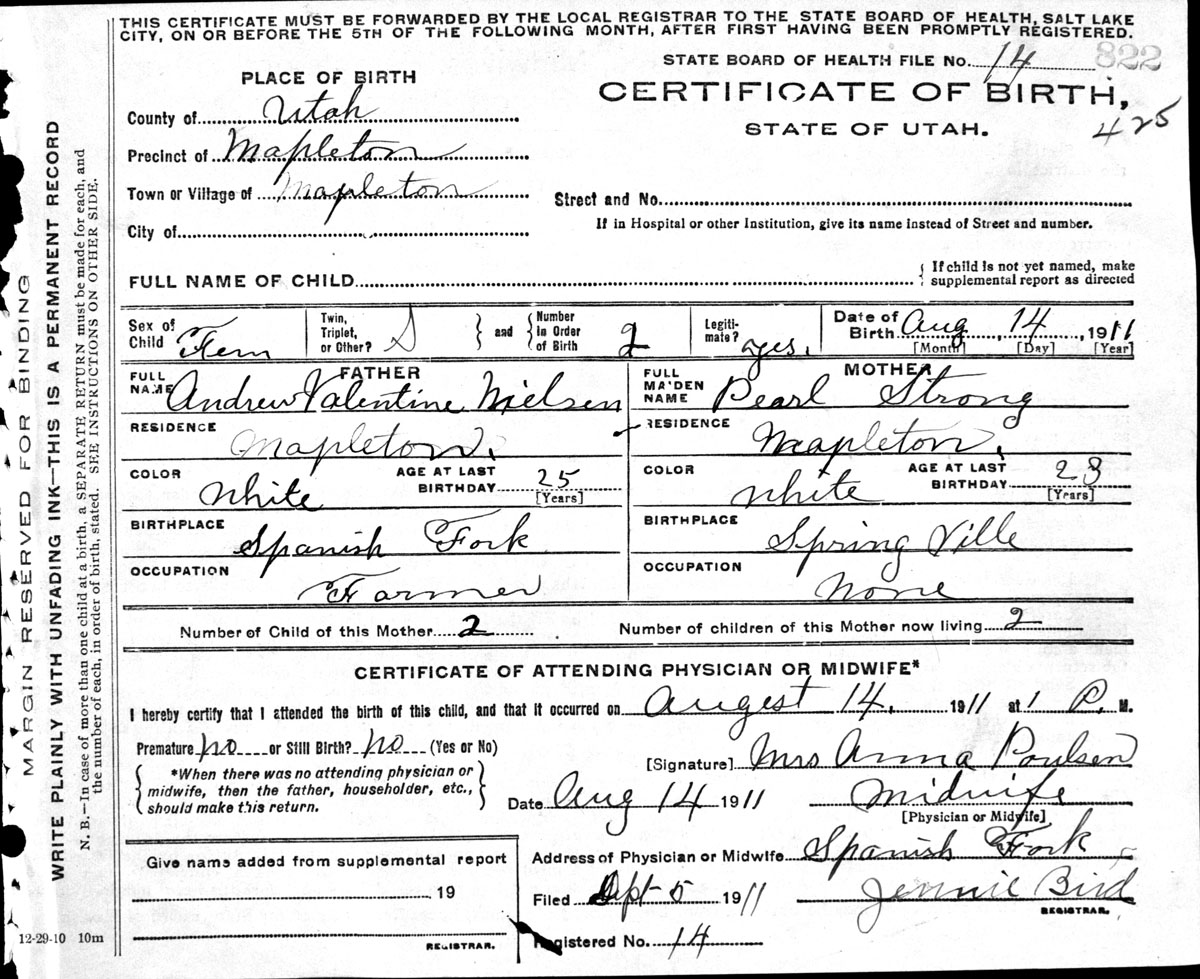 THIS CERTIFICATE MUST BE FORWARDED BY THE LOCAL REGISTRAR TO THE STATE BOARD OF HEALTH, SALT LAKE
CITY, ON OR BEFORE THE 5TH OF THE FOLLOWING MONTH, AFTER FIRST HAVING BEEN PROMPTLY REGISTERED.
STATE BOARD OF HEALTH FILE No. 14 822
PLACE OF BIRTH
CERTIFICATE OF BIRTH,
County of Utah
STATE OF UTAH.
425
Precinct of Mapleton
Town or Village of Mapleton
Street and No.
City of
If in Hospital or other Institution, give its name instead of Street and number.
FULL NAME OF CHILD
{ If child is not yet named, make
supplemental report as directed
Sex of Child Fem
Twin, Triplet, or Other? S } and { Number in Order of Birth 2
Legiti-mate? yes.
Date of Birth Aug 14, 1911
[Month] [Day] [Year]
FATHER
FULL NAME Andrew Valentine Nielsen
MOTHER
FULL MAIDEN NAME Pearl Strong
RESIDENCE Mapleton.
RESIDENCE Mapleton.
COLOR White AGE AT LAST BIRTHDAY 25 [Years]
COLOR White AGE AT LAST BIRTHDAY 23 [Years]
BIRTHPLACE Spanish Fork
BIRTHPLACE Spring Ville
OCCUPATION Farmer
OCCUPATION None
Number of Child of this Mother 2
Number of children of this Mother now living 2
CERTIFICATE OF ATTENDING PHYSICIAN OR MIDWIFE*
I hereby certify that I attended the birth of this child, and that it occurred on Augest 14, 1911 at 1 P. M.
Premature no or Still Birth? no (Yes or No)
[Signature] Mrs Anna Poulsen
{ *When there was no attending physician or
midwife, then the father, householder, etc.,
should make this return. }
Date Aug 14 1911
Midwife
[Physician or Midwife]
Give name added from supplemental report
19
REGISTRAR.
Address of Physician or Midwife Spanish Fork
Filed Sept 5 1911
Jennie Bird
REGISTRAR.
Registered No. 14
12-29-10 10m
MARGIN RESERVED FOR BINDING
WRITE PLAINLY WITH UNFADING INK—THIS IS A PERMANENT RECORD
N. B.—In case of more than one child at a birth, a SEPARATE RETURN must be made for each, and
the number of each, in order of birth, stated. SEE INSTRUCTIONS ON OTHER SIDE.